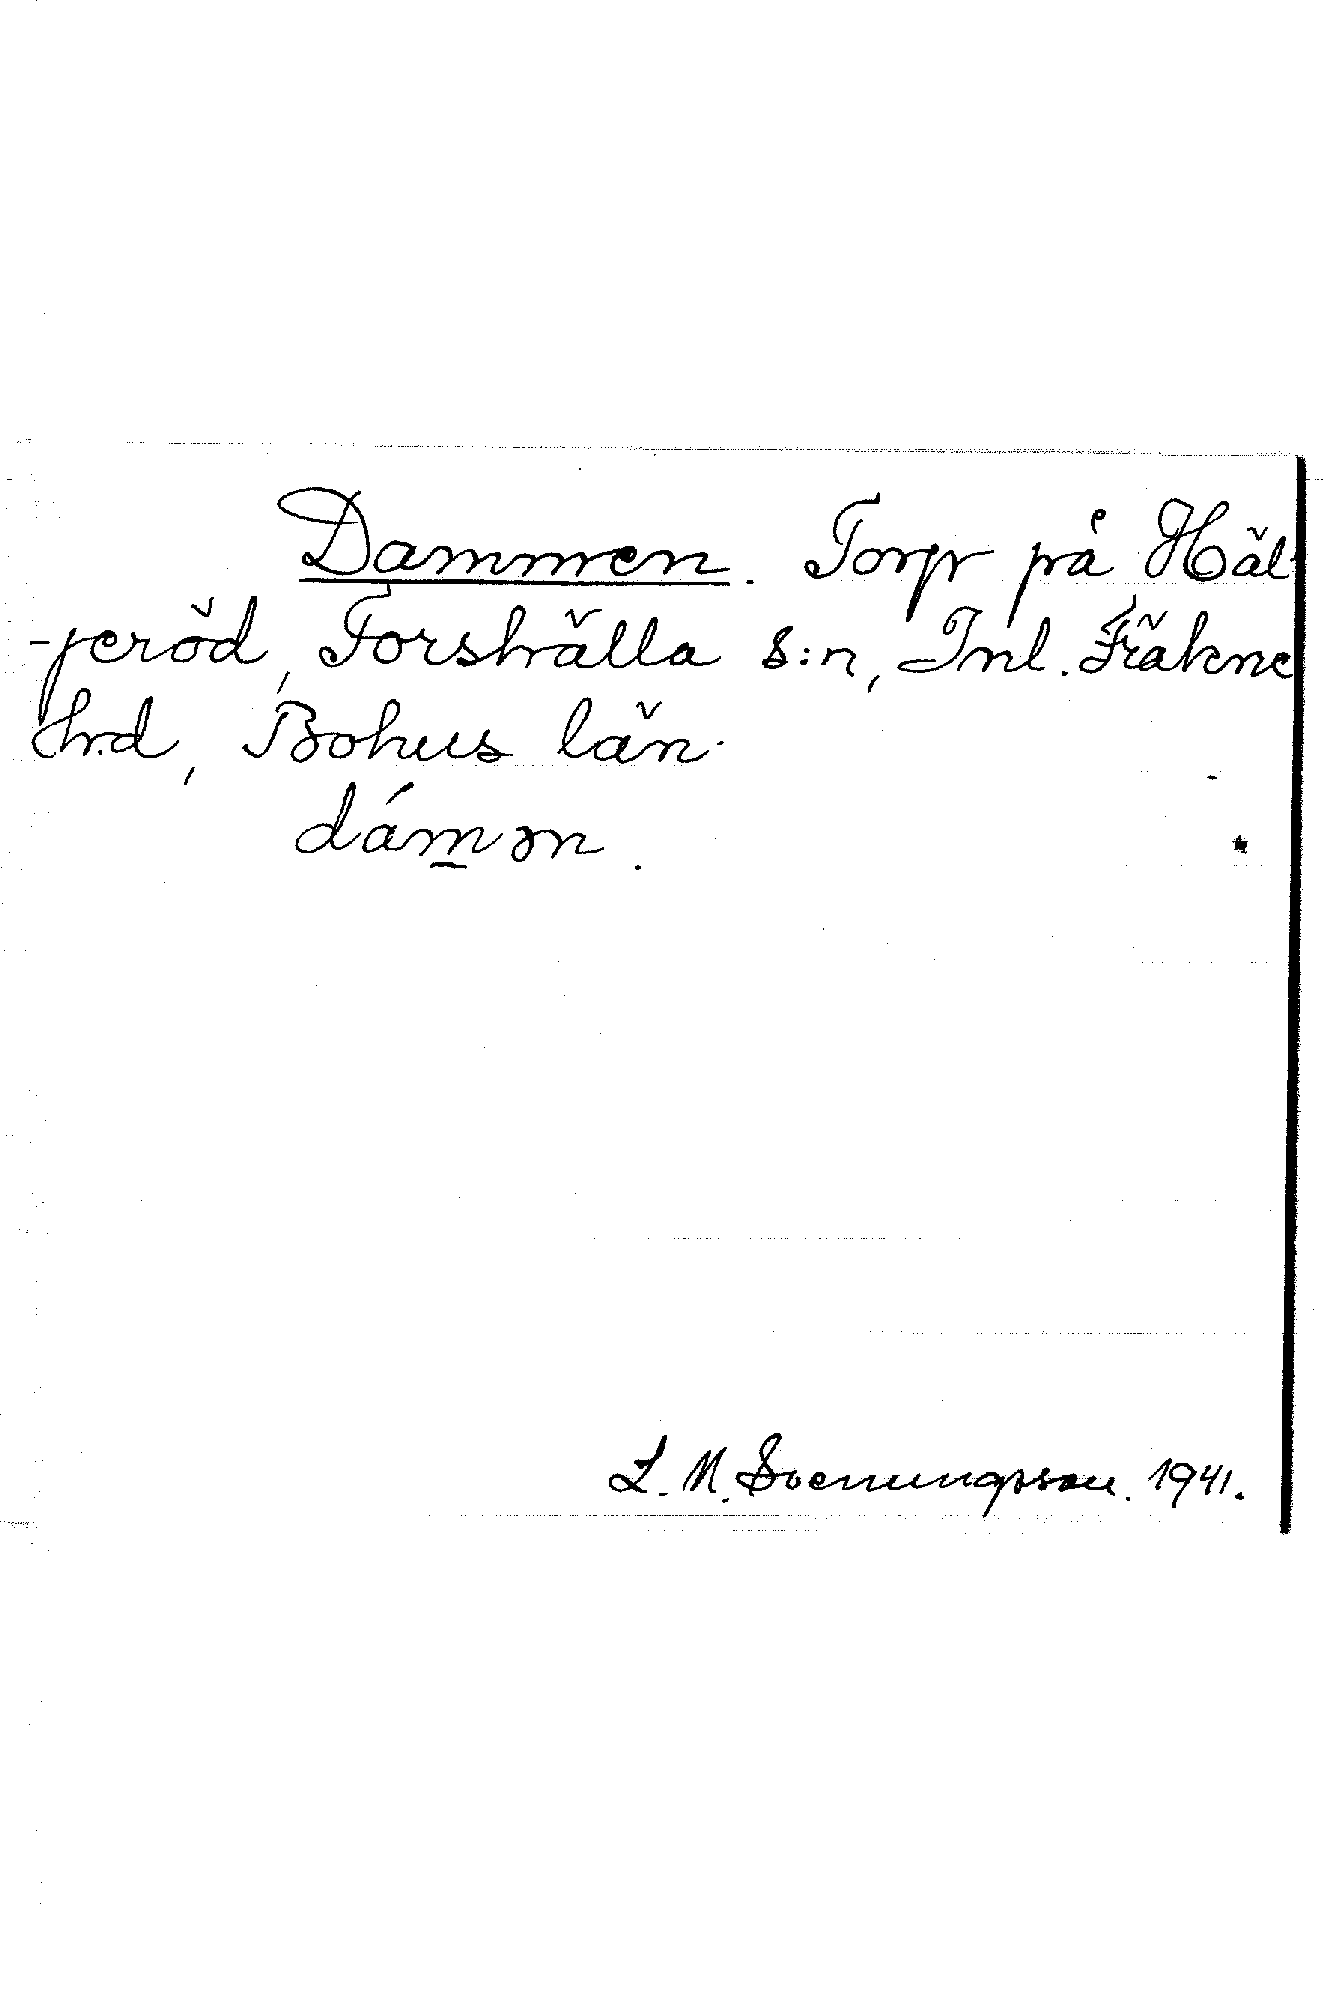 Dammen. Torp på Häl-
-peröd, Forshälla s:n, Inl. Fräkne
hrd, Bohus län.
dámən.
L. M. Svenungsson. 1941.